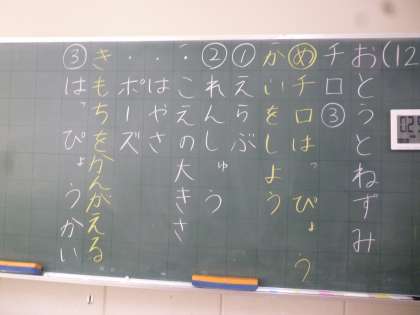 (12
おとうとねずみ
チロ③
めチロはっぴょう
かいをしよう
①えらぶ
②れんしゅう
・こえの大きさ
・はやさ
・ポーズ
きもちを分んがえる
③はっぴょうかい